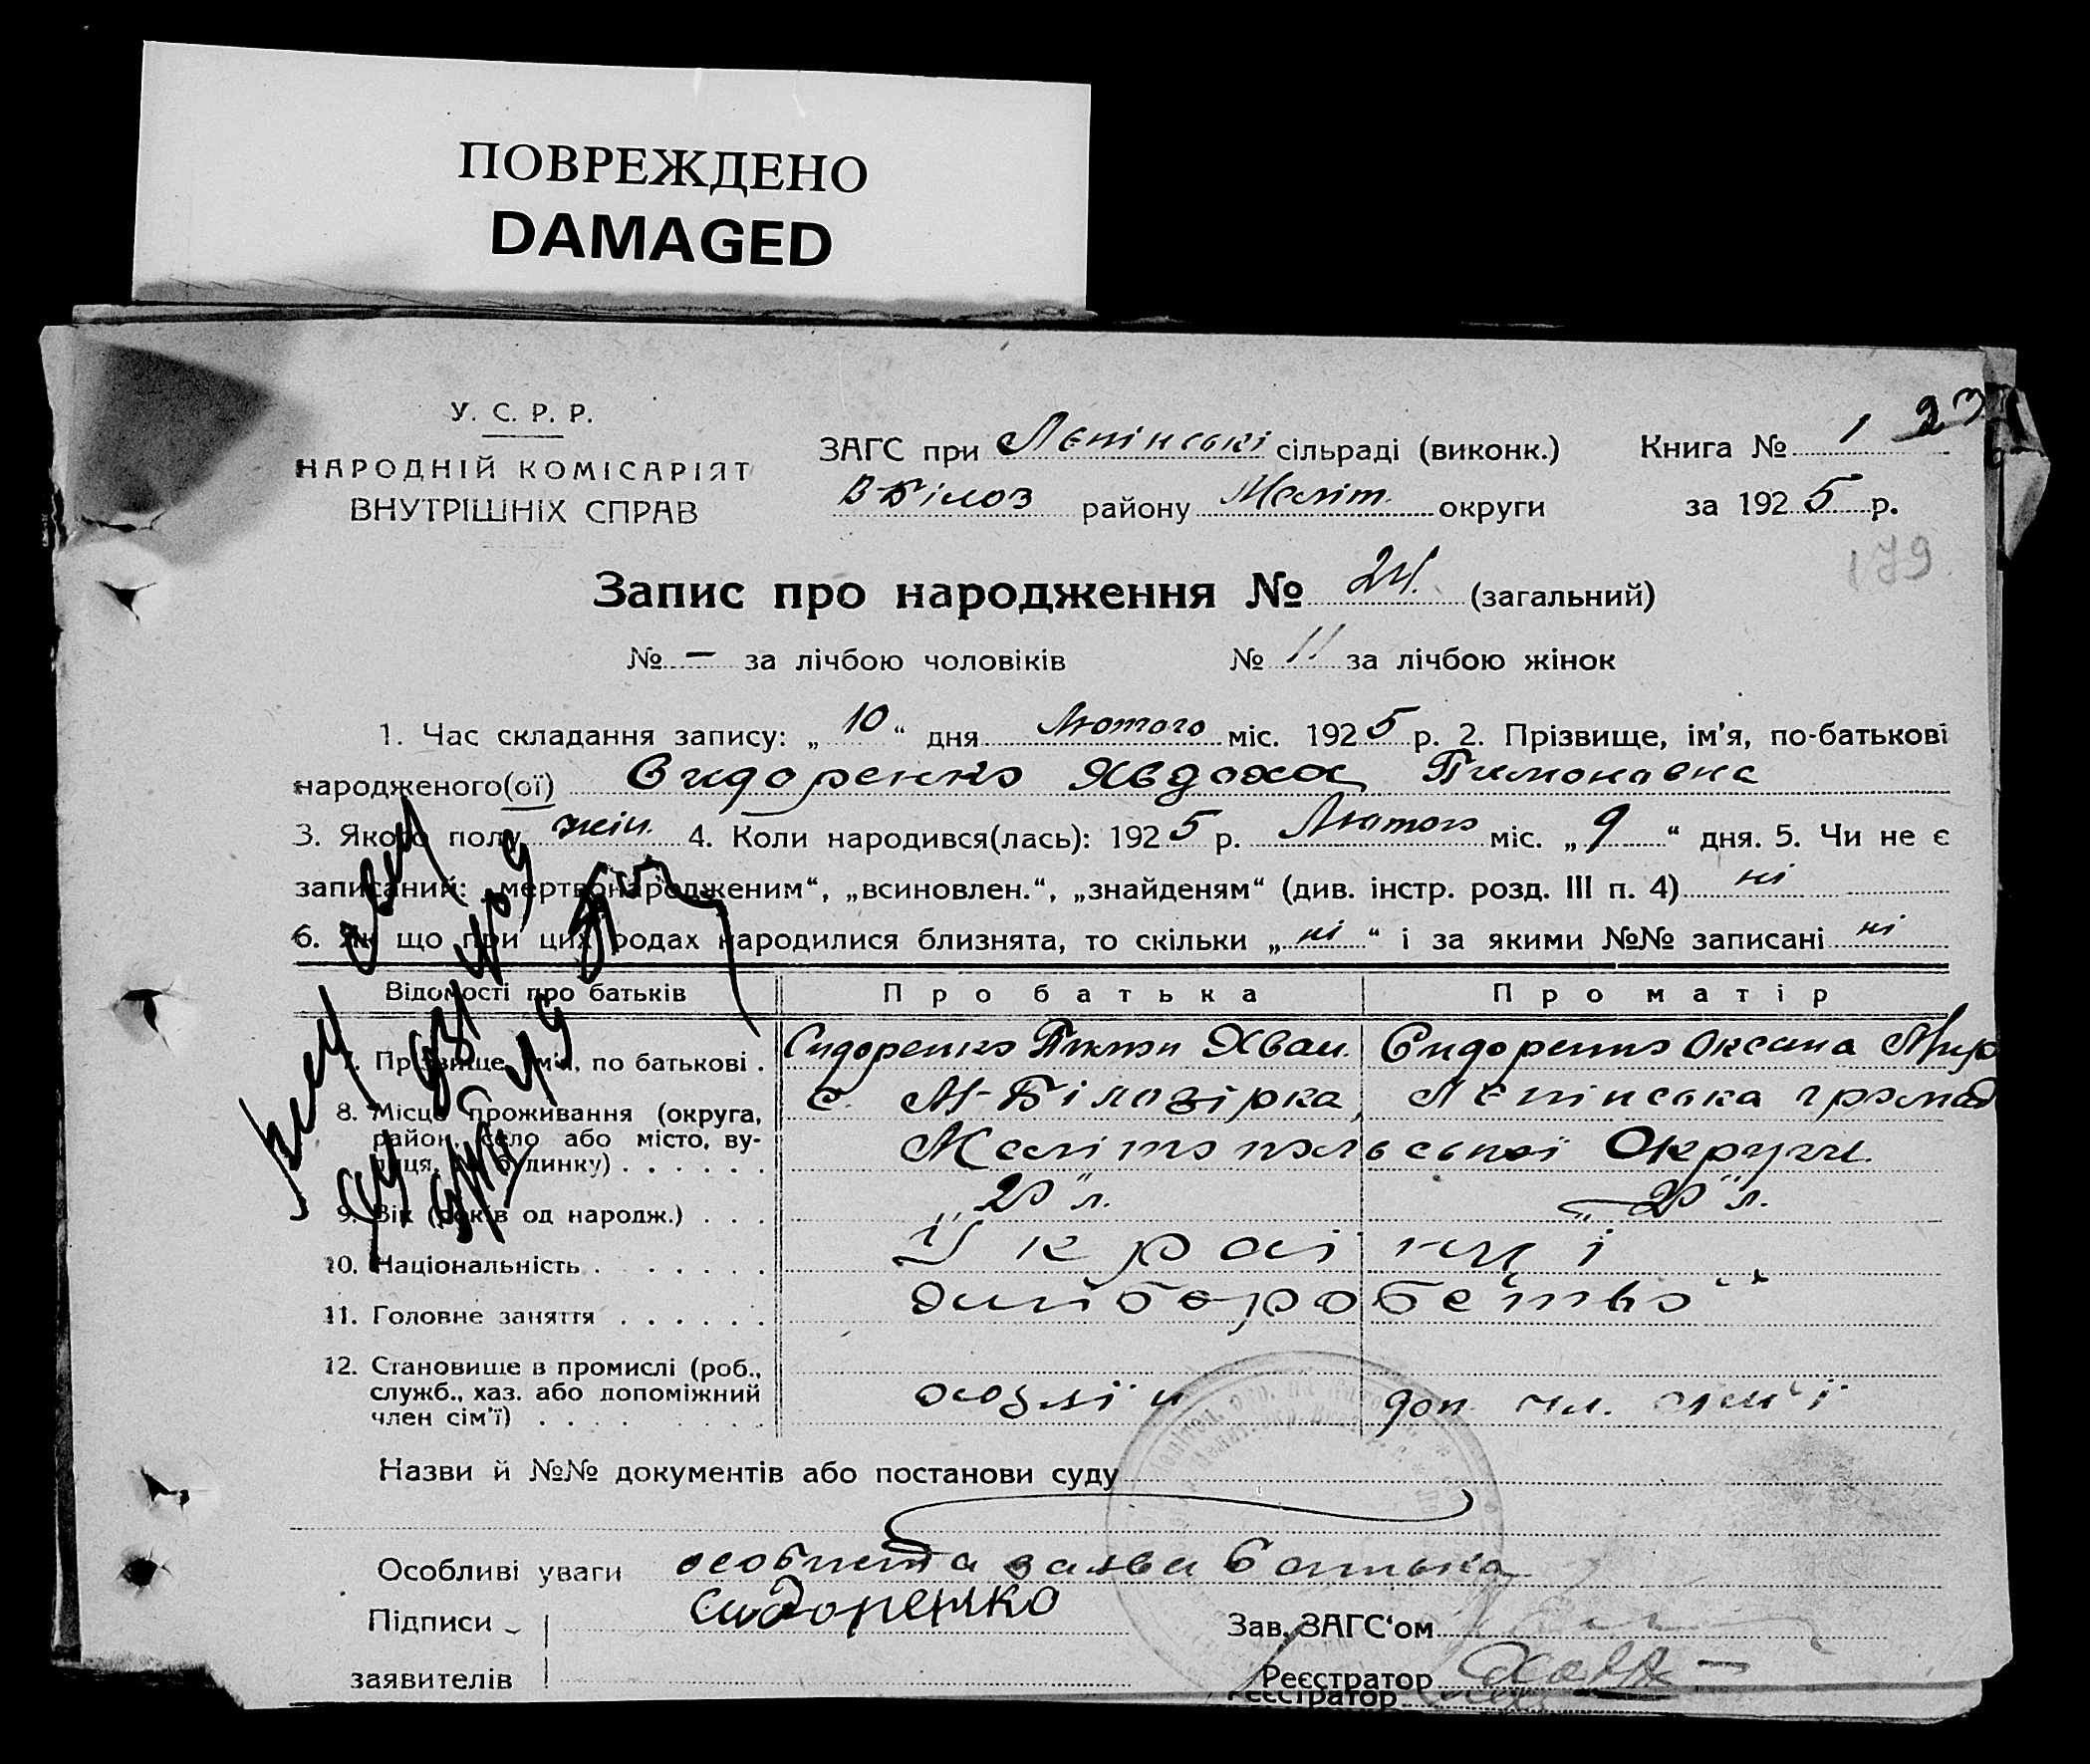 ПОВРЕЖДЕНО
DAMAGED
У. С. Р. Р.
НАРОДНІЙ КОМІСАРІЯТ
ВНУТРІШНІХ СПРАВ
ЗАГС при Лєнінські сільраді (виконк.)
В-Білоз району Меліт. округи
Книга № 1 23
за 1925 р.
179
Запис про народження № 24. (загальний)
№ — за лічбою чоловіків № 11 за лічбою жінок
1. Час складання запису: „ 10 “ дня Лютого міс. 1925 р. 2. Прізвище, ім'я, по-батькові
народженого(ої) Сидоренко Явдоха Тимоховна
3. Якого полу жін. 4. Коли народився(лась): 1925 р. Лютого міс. „ 9 “ дня. 5. Чи не є
записаний: „мертвонародженим“, „всиновлен.“, „знайденям“ (див. інстр. розд. III п. 4) ні
6. Як що при цих родах народилися близнята, то скільки „ ні “ і за якими №№ записані ні
Відомості про батьків Про батька Про матір
7. Прізвище, ім'я, по батькові . Сидоренко Яхван. Сидоренко Оксана
8. Місце проживання (округа, с. М-Білозірка, Лєнінська громад
район, село або місто, ву-
лиця, № будинку) . . . . . . Мелітопольської Округи.
9. Вік (років од народж.) . . . „20“ л. „20“ л.
10. Національність . . . . . . Українці
11. Головне заняття . . . . . . хліборобство
12. Становище в промислі (роб.,
служб., хаз. або допоміжний хазяїн доп. чл. сім'ї
член сім'ї) . . . . . . . .
Назви й №№ документів або постанови суду
Особливі уваги особиста заява батька
Підписи Сидоренко Зав. ЗАГС'ом
заявителів Реєстратор
Реєстратор